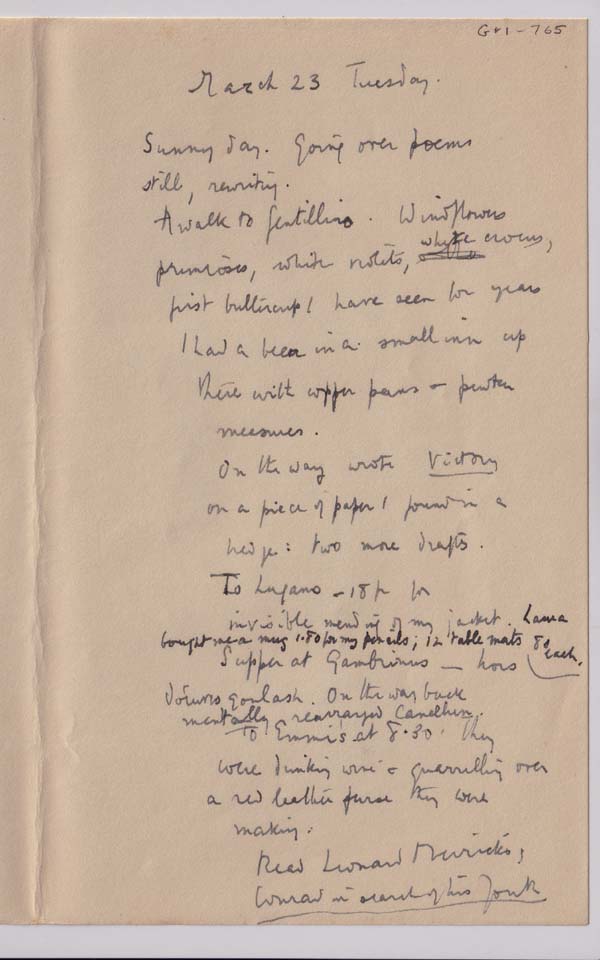 GVI-765
March 23 Tuesday.
Sunny day. Going over poems
still, rewriting.
A walk to Gentillino. Windflowers
primroses, white violets, white crocus,
first buttercup I have seen for years
I had a beer in a small inn up
there with copper pans & pewter
measures.
On the way wrote Victory
on a piece of paper I found in a
hedge: two more drafts.
To Lugano - 18fr for
invisible mending of my jacket. Laura
bought me a mug 1.80 for my pencils; 12 table mats 80 each.
Supper at Gambrinus — hors
d'oeuvres goulash. On the way back
mentally rearrayed
To Emmi's at 8.30. They
were drinking wine & quarrelling over
a red leather purse they were
making.
Read Leonard Merrick's;
Conrad in search of his Youth